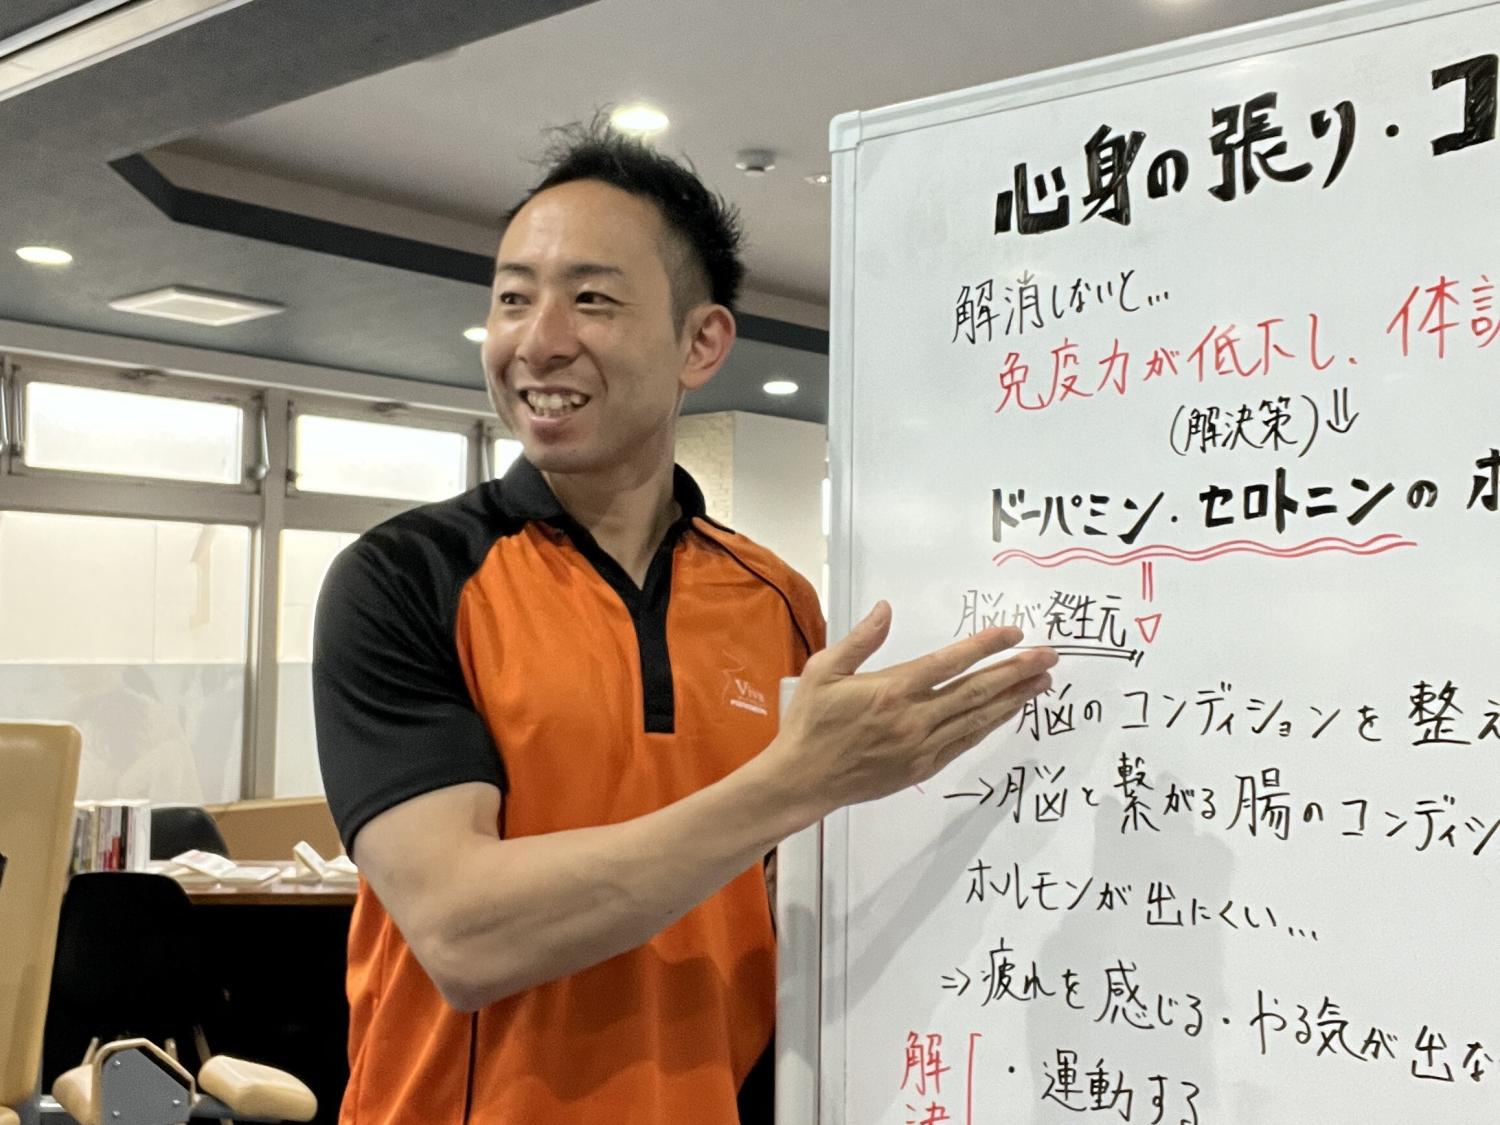 心身の張り・コ
解消しないと…
免疫力が低下し、体調
(解決策)⇓
ドーパミン・セロトニンのホ
脳が発生元
脳のコンディションを整え
→脳と繋がる腸のコンディシ
ホルモンが出にくい…
⇒疲れを感じる・やる気が出な
解決
・運動する
Viva